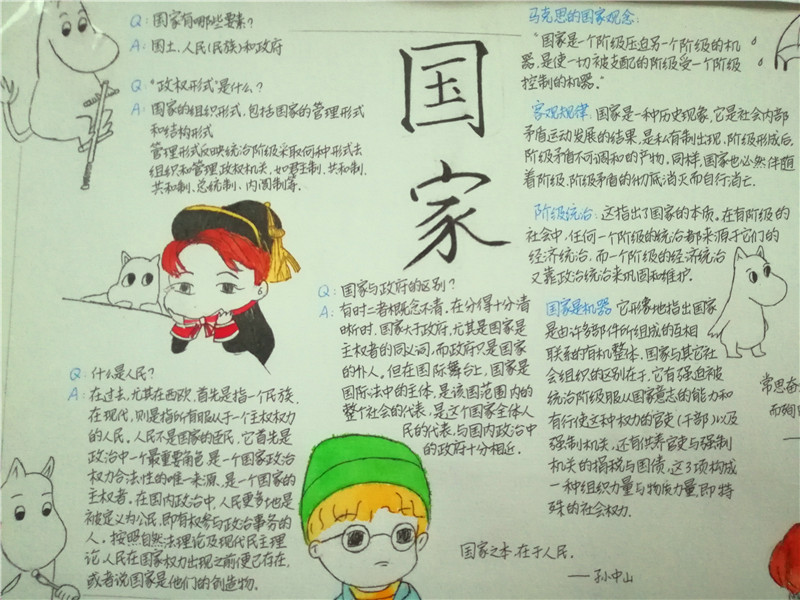 Q: 国家有哪些要素?
A: 国土,人民(民族)和政府
Q: "政权形式"是什么?
A: 国家的组织形式,包括国家的管理形式
和结构形式
管理形式反映统治阶级采取何种形式去
组织和管理政权机关,如君主制、共和制、
共和制、总统制、内阁制等.
国家
马克思的国家观念:
"国家是一个阶级压迫另一个阶级的机
器,是使一切被支配的阶级受一个阶级
控制的机器."
客观规律:国家是一种历史现象,它是社会内部
矛盾运动发展的结果,是私有制出现,阶级形成后,
阶级矛盾不可调和的产物,同样,国家也必然伴随
着阶级、阶级矛盾的彻底消灭而自行消亡.
阶级统治:这指出了国家的本质。在有阶级的
社会中,任何一个阶级的统治都来源于它们的
经济统治,而一个阶级的经济统治
又靠政治统治来巩固和维护.
国家是机器 它形象地指出国家
是由许多部件所组成的互相
联系的有机整体,国家与其它社
会组织的区别在于,它有强迫被
统治阶级服从国家意志的能力和
有行使这种权力的官吏(干部)以及
强制机关,还有供养官吏与强制
机关的捐税与国债,这3项构成
一种组织力量与物质力量,即特
殊的社会权力.
Q: 国家与政府的区别?
A: 有时二者概念不清,在分得十分清
晰时,国家大于政府,尤其是国家是
主权者的同义词,而政府只是国家
的仆人,但在国际舞台上,国家是
国际法中的主体,是该国范围内的
整个社会的代表,是这个国家全体人
民的代表,与国内政治中
的政府十分相近.
Q: 什么是人民?
A: 在过去,尤其在西欧,首先是指一个民族,
在现代,则是指所有服从于一个主权权力
的人民,人民不是国家的臣民,它首先是
政治中一个最重要角色,是一个国家政治
权力合法性的唯一来源,是一个国家的
主权者,在国内政治中,人民更多地是
被定义为公民,即有权参与政治事务的
人。按照自然法理论及现代民主理
论,人民在国家权力出现之前便已存在,
或者说国家是他们的创造物.
常思奋
而殉
国家之本,在于人民.
——孙中山